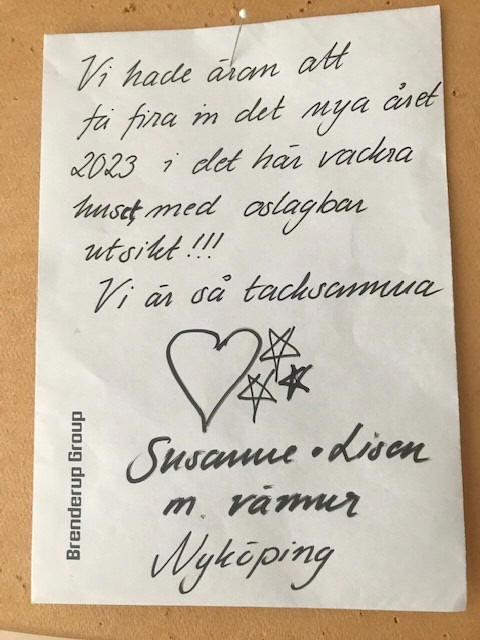 Vi hade äran att
få fira in det nya året
2023 i det här vackra
huset, med oslagbar
utsikt!!!
Vi är så tacksamma
Susanne • Lisen
m. vänner
Nyköping
Brenderup Group